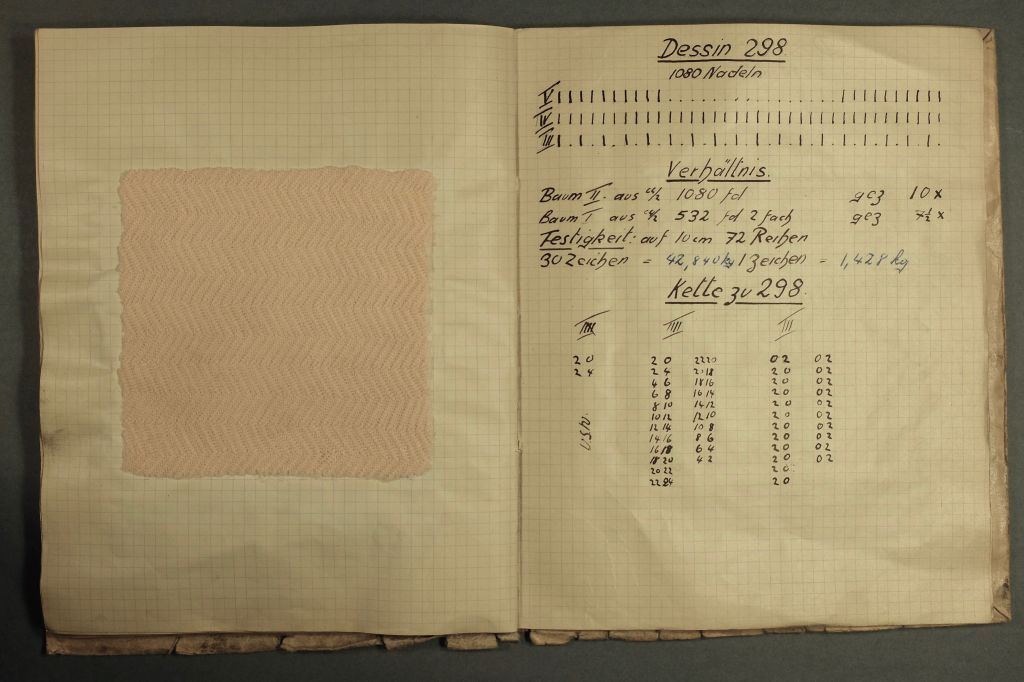 Dessin 298
1080 Nadeln
V
IV
III
Verhältnis.
Baum II. aus 1080 fd gez 10 x
Baum I aus 532 fd 2 fach gez 7½ x
Festigkeit: auf 10 cm 72 Reihen
30 Zeichen = 42,840 kg 1 Zeichen = 1,428 kg
Kette zu 298.
IIII III
2 0 2 0 22 20 0 2 0 2
2 4 2 4 20 18 2 0 0 2
4 6 18 16 2 0 0 2
6 8 16 14 2 0 0 2
8 10 14 12 2 0 0 2
10 12 12 10 2 0 0 2
usw. 12 14 10 8 2 0 0 2
14 16 8 6 2 0 0 2
16 18 6 4 2 0 0 2
18 20 4 2 2 0 0 2
20 22 2 0
22 24 2 0